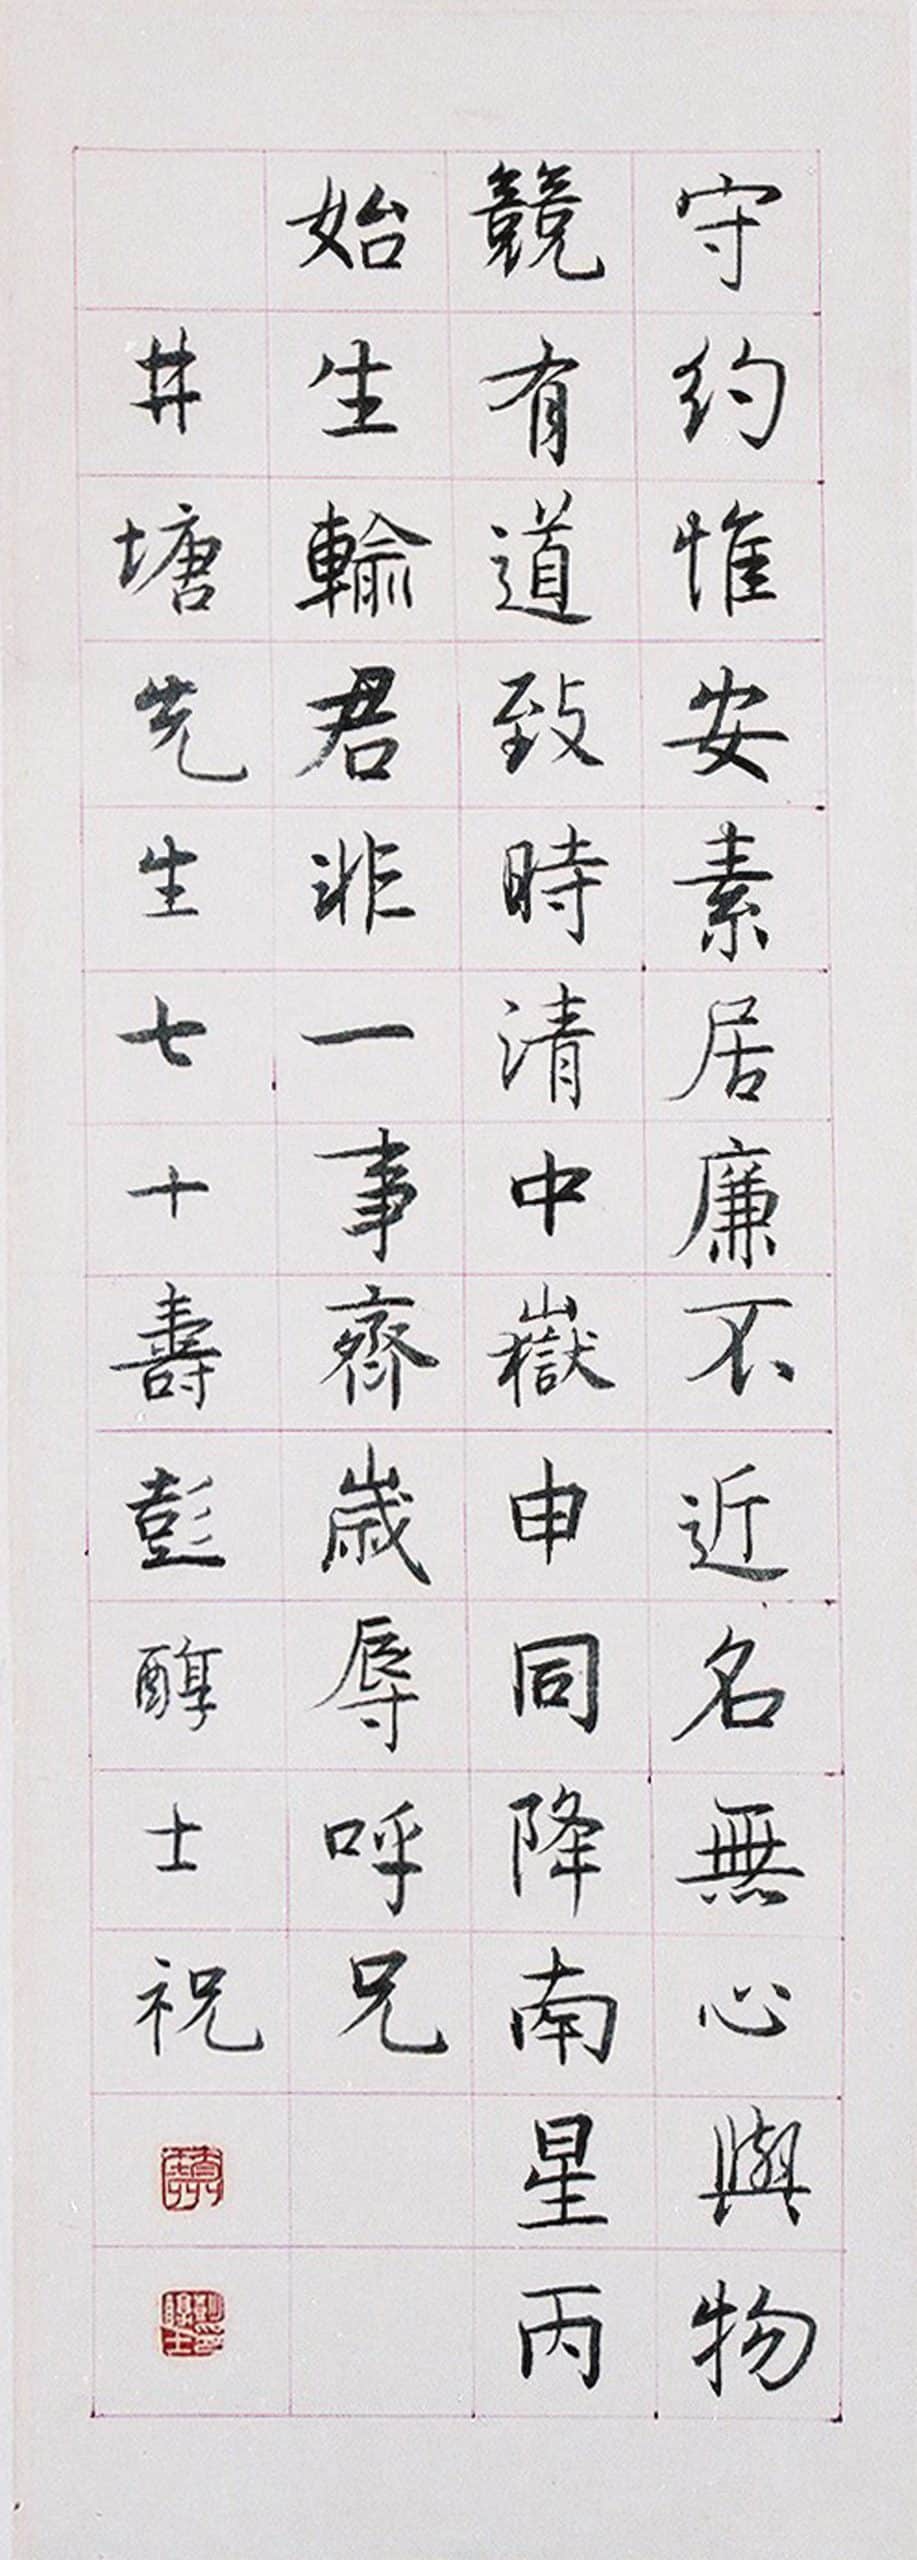 守約惟安素居廉不近名無心與物
競有道致時清中嶽申同降南星丙
始生輸君非一事齊歲辱呼兄
井塘先生七十壽彭醇士祝